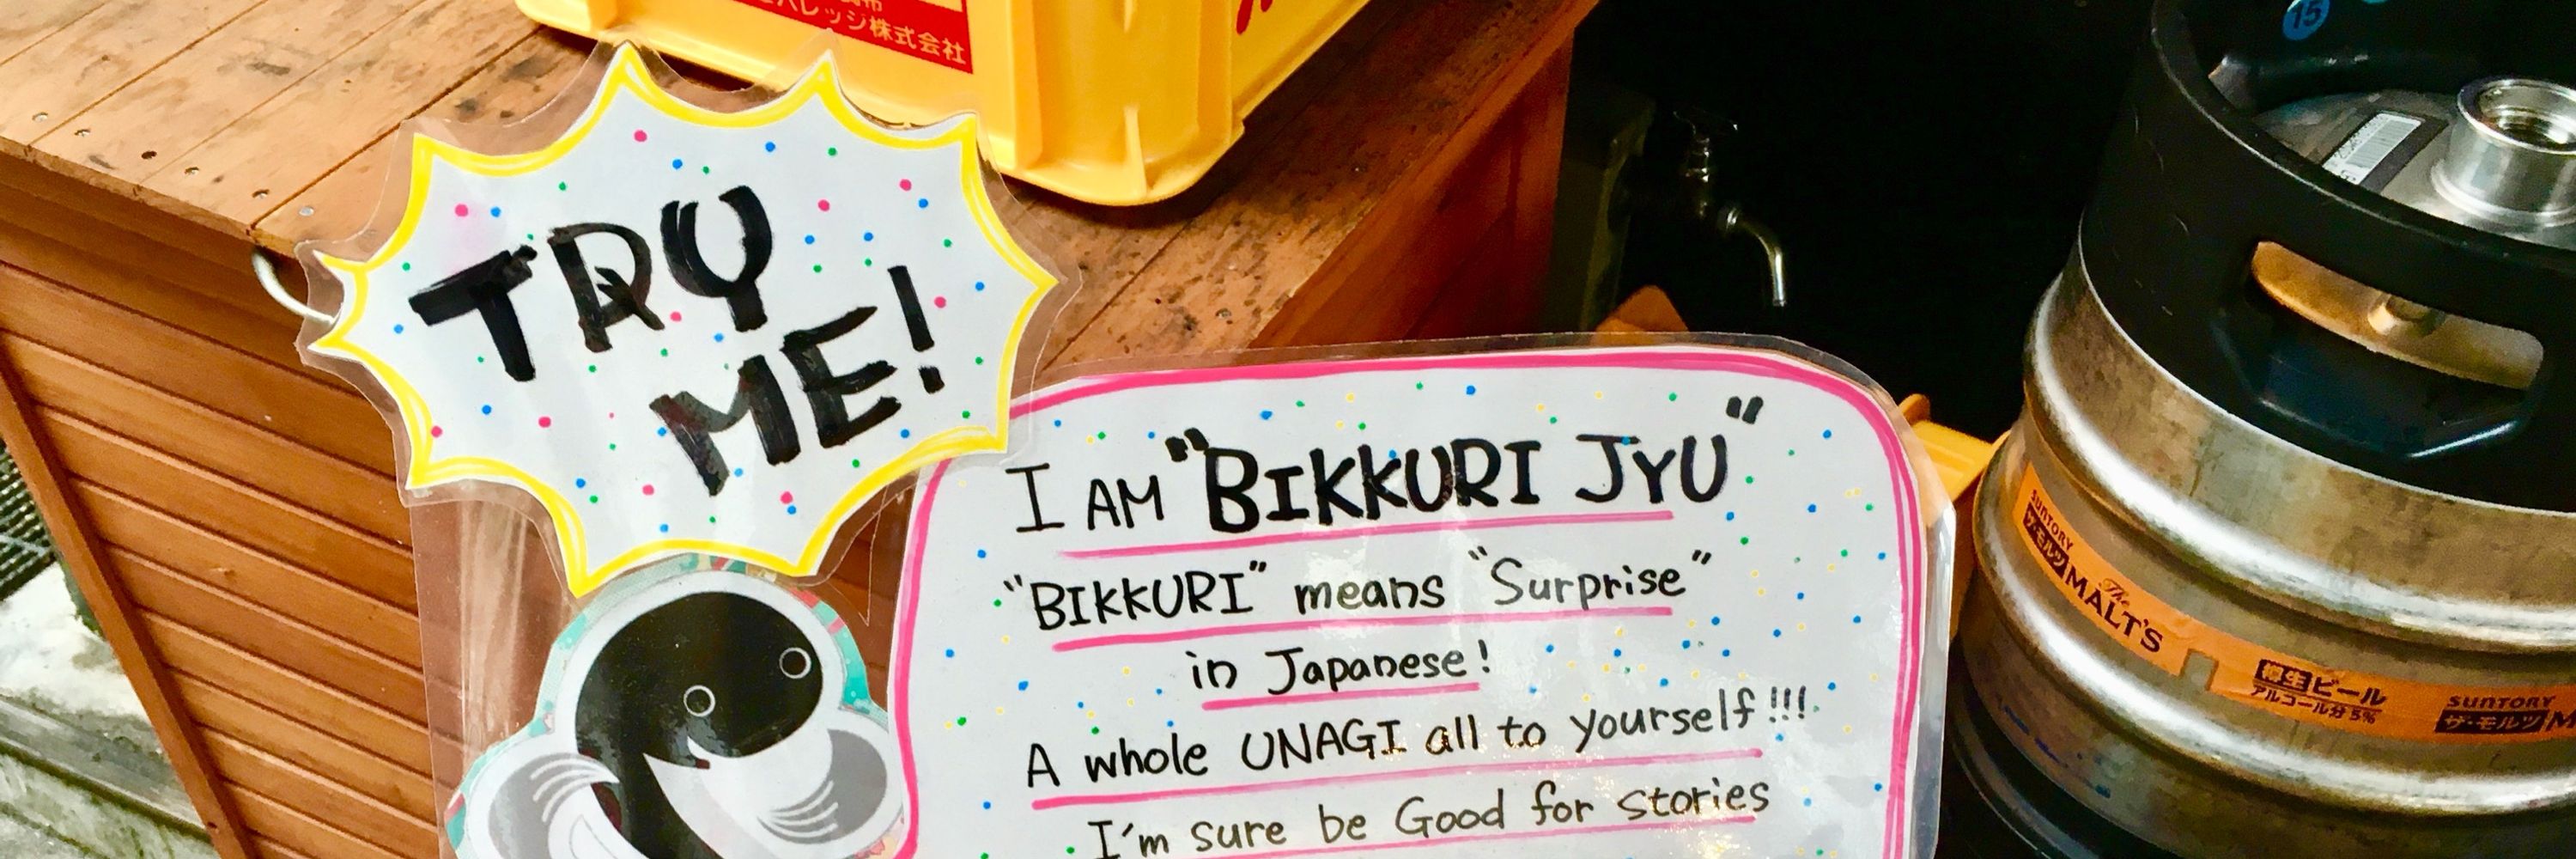 ビバレッジ株式会社
15
TRY
ME!
I AM "BIKKURI JYU"
"BIKKURI" means "Surprise"
in Japanese!
A whole UNAGI all to yourself!!!
I'm sure be Good for stories
SUNTORY
ザ・モルツ The MALT'S
樽生ビール
アルコール分5%
SUNTORY
ザ・モルツ M